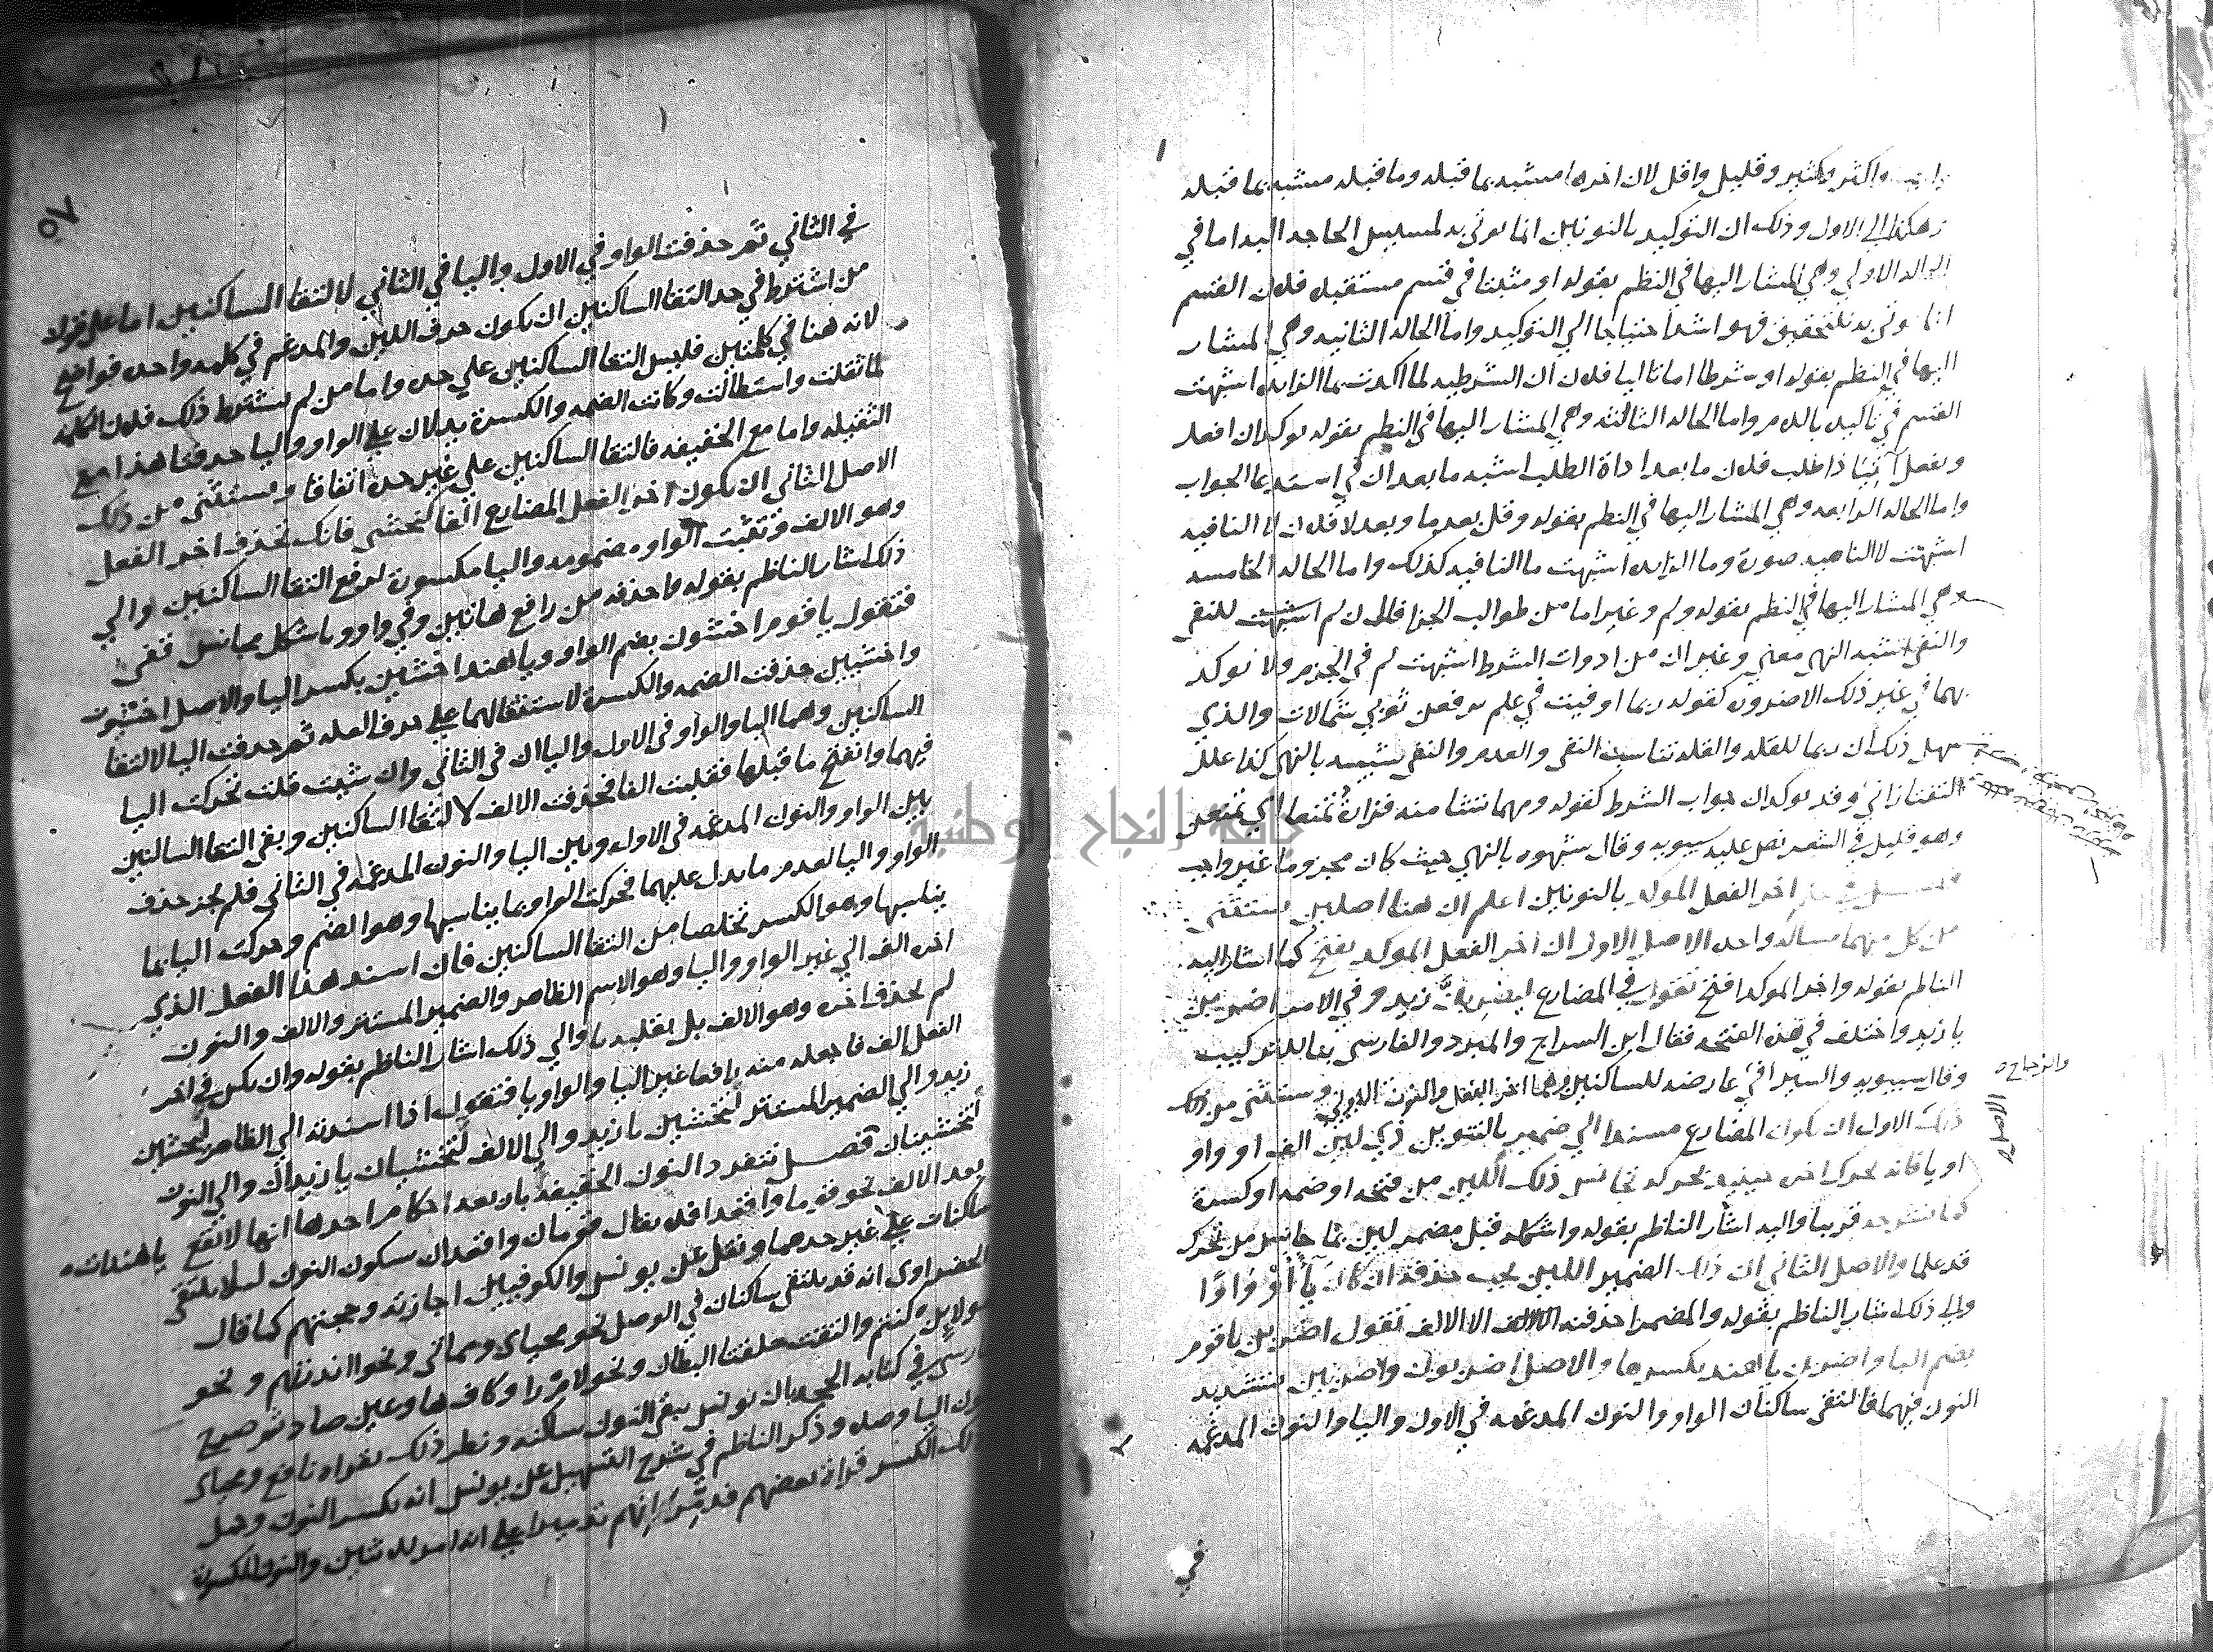 واكثر وكثير وقليل واقل لان اخرها مشبه بما قبله وما قبله مشبه بما قبله
هكذا الي الاول وذلك ان التوكيد بالنونين انما يوتي به لمسيس الحاجه اليه اما في
الحاله الاولي وهي المشار اليها في النظم بقوله او مثبتا في قسم مستقبلا فلان القسم
انما يوتي به للتحقيق فهو اشد احتياجا الي التوكيد واما الحاله الثانيه وهي المشار
اليها في النظم بقوله او شرطا اما تاليا فلان ان الشرطيه لما اكدت بما الزايده اشبهت
القسم في تاكيده باللام واما الحاله الثالثه وهي المشار اليها في النظم بقوله يوكدان افعل
ويفعل آتيا ذا طلب فلان ما بعد اداة الطلب اشبه ما بعد ان في استدعا الجواب
واما الحاله الرابعه وهي المشار اليها في النظم بقوله وقل بعد ما وبعد لا فلان لا النافيه
اشبهت لا الناهيه صورة وما الزايده اشبهت ما النافيه كذلك واما الحاله الخامسه
وهي المشار اليها في النظم بقوله ولم وغير اما من طوالب الجزا فلان لم اشبهت للنفي
والنفي اشبه النهي معني وغير ان من ادوات الشرط اشبهت لم في الجزم ولا توكد
بهما في غير ذلك الا ضرورة كقوله ربما اوفيت في علم ترفعن ثوبي شمالات والذي
سهل ذلك ان ربما للقله والقله تناسب النفي والعدم والنفي شبيه بالنهي كذا علل
التفتازاني وقد يوكدان جواب الشرط كقوله ومهما تشا منه فزارة تمنعا اي تمنعن
وهو قليل في الشعر نص عليه سيبويه وقال شبهوه بالنهي حيث كان مجزوما غير واجب
فصل في اخر الفعل الموكد بالنونين اعلم ان هنا اصلين يستثني
من كل منهما مساله واحده الاصل الاول ان اخر الفعل الموكد يفتح كما اشار اليه
الناظم بقوله واخر الموكد افتح تقول في المضارع ليضربن زيد وفي الامر اضربن
يا زيد واختلف في هذه الفتحه فقال ابن السراج والمبرد والفارسي بنا للتركيب
وقال سيبويه والسيرافي عارضه للساكنين وهما اخر الفعل والنون الاولي ويستثني من ذلك
والزجاج
الاصل
ذلك الاول ان يكون المضارع مسندا الي ضمير بالتنوين ذي لين الف او واو
او يا فانه يحرك اخره حينيذ بحركه تجانس ذلك اللين من فتحه او ضمه او كسرة
كما نشرحه قريبا واليه اشار الناظم بقوله واشكله قبل مضمر لين بما جانس من تحرك
قد علما والاصل الثاني ان ذلك الضمير اللين يجب حذفه ان كان يآ أو واوا
والي ذلك اشار الناظم بقوله والمضمر احذفنه الا الالف تقول اضربن يا قوم
بضم البا واضربن يا هند بكسرها والاصل اضربون واضربين بتشديد
النون فيهما فالتقي ساكنان الواو والنون المدغمه في الاول واليا والنون المدغمه
في
٥٧
في الثاني ثم حذفت الواو في الاول واليا في الثاني لالتقا الساكنين اما علي قول
من اشترط في حد التقا الساكنين ان يكون حرف اللين والمدغم في كلمه واحده فواضح
لانه هنا في كلمتين فليس التقا الساكنين علي حده واما من لم يشترط ذلك فلان الكلمه
لما ثقلت واستطالت وكانت الضمه والكسرة يدلان علي الواو واليا حدفتا هذا مع
الثقيله واما مع الخفيفه فالتقا الساكنين علي غير حده اتفاقا ويستثني من ذلك
الاصل الثاني ان يكون اخر الفعل المضارع الفا كتخشي فانك تحذف اخر الفعل
وهو الالف وتثبت الواو مضمومه واليا مكسورة لدفع التقا الساكنين والي
ذلك اشار الناظم بقوله واحذفه من رافع هاتين وفي واو ويا شكل مجانس قفي
فتقول يا قوم اخشون بضم الواو ويا هند اخشين بكسر اليا والاصل اخشيون
واخشيين حذفت الضمه والكسرة لاستثقالهما علي حرف العله ثم حدفت اليا لالتقا
الساكنين وهما اليا والواو في الاول والياان في الثاني وان شيت قلت تحركت اليا
فيهما وانفتح ما قبلها فقلبت الفا فحذفت الالف لالتقا الساكنين وبقي التقا الساكنين
بين الواو والنون المدغمه في الاول وبين اليا والنون المدغمه في الثاني فلم يجز حذف
الواو واليا لعدم ما يدل عليهما فحركت الواو بما يناسبها وهو الضم وحركت اليا بما
يناسبها وهو الكسر تخلصا من التقا الساكنين فان اسند هذا الفعل الذي
اخره الف الي غير الواو واليا وهو الاسم الظاهر والضمير المستتر والالف والنون
لم يحذف اخره وهو الالف بل يقلب يا والي ذلك اشار الناظم بقوله وان يكن في اخر
الفعل الف فاجعله منه رافعا غير اليا والواو يا فتقول اذا اسندته الي الظاهر ليخشين
زيد والي الضمير المستتر لتخشين يا زيد والي الالف لتخشيان يا زيدان والي النون
لتخشينان يا هندات
فصل تنفرد النون الخفيفه باربعه احكام احدها انها لا تقع
بعد الالف نحو قوما واقعدا فلا يقال قومان واقعدان بسكون النون ليلا يلتقي
ساكنان علي غير حدهما ونقل عن يونس والكوفيين اجازته وحجتهم كما قال
الخضراوي انه قد يلتقي ساكنان في الوصل نحو محياي ومماتي ونحو اانذرتهم ونحو
هولا ان كنتم والتقت حلقتا البطان ونحو لام را وكاف ها وعين صاد ثم صرح
الفارسي في كتابه الحجه بان يونس يبقي النون ساكنه ونظر ذلك بقراه نافع ومحياي
بسكون اليا وصلا وذكر الناظم في شرح التسهيل عن يونس انه يكسر النون وحمل
ذلك الكسر قراة بعضهم فدمرانهم تدميرا علي انه امر للاثنين والنون المكسورة